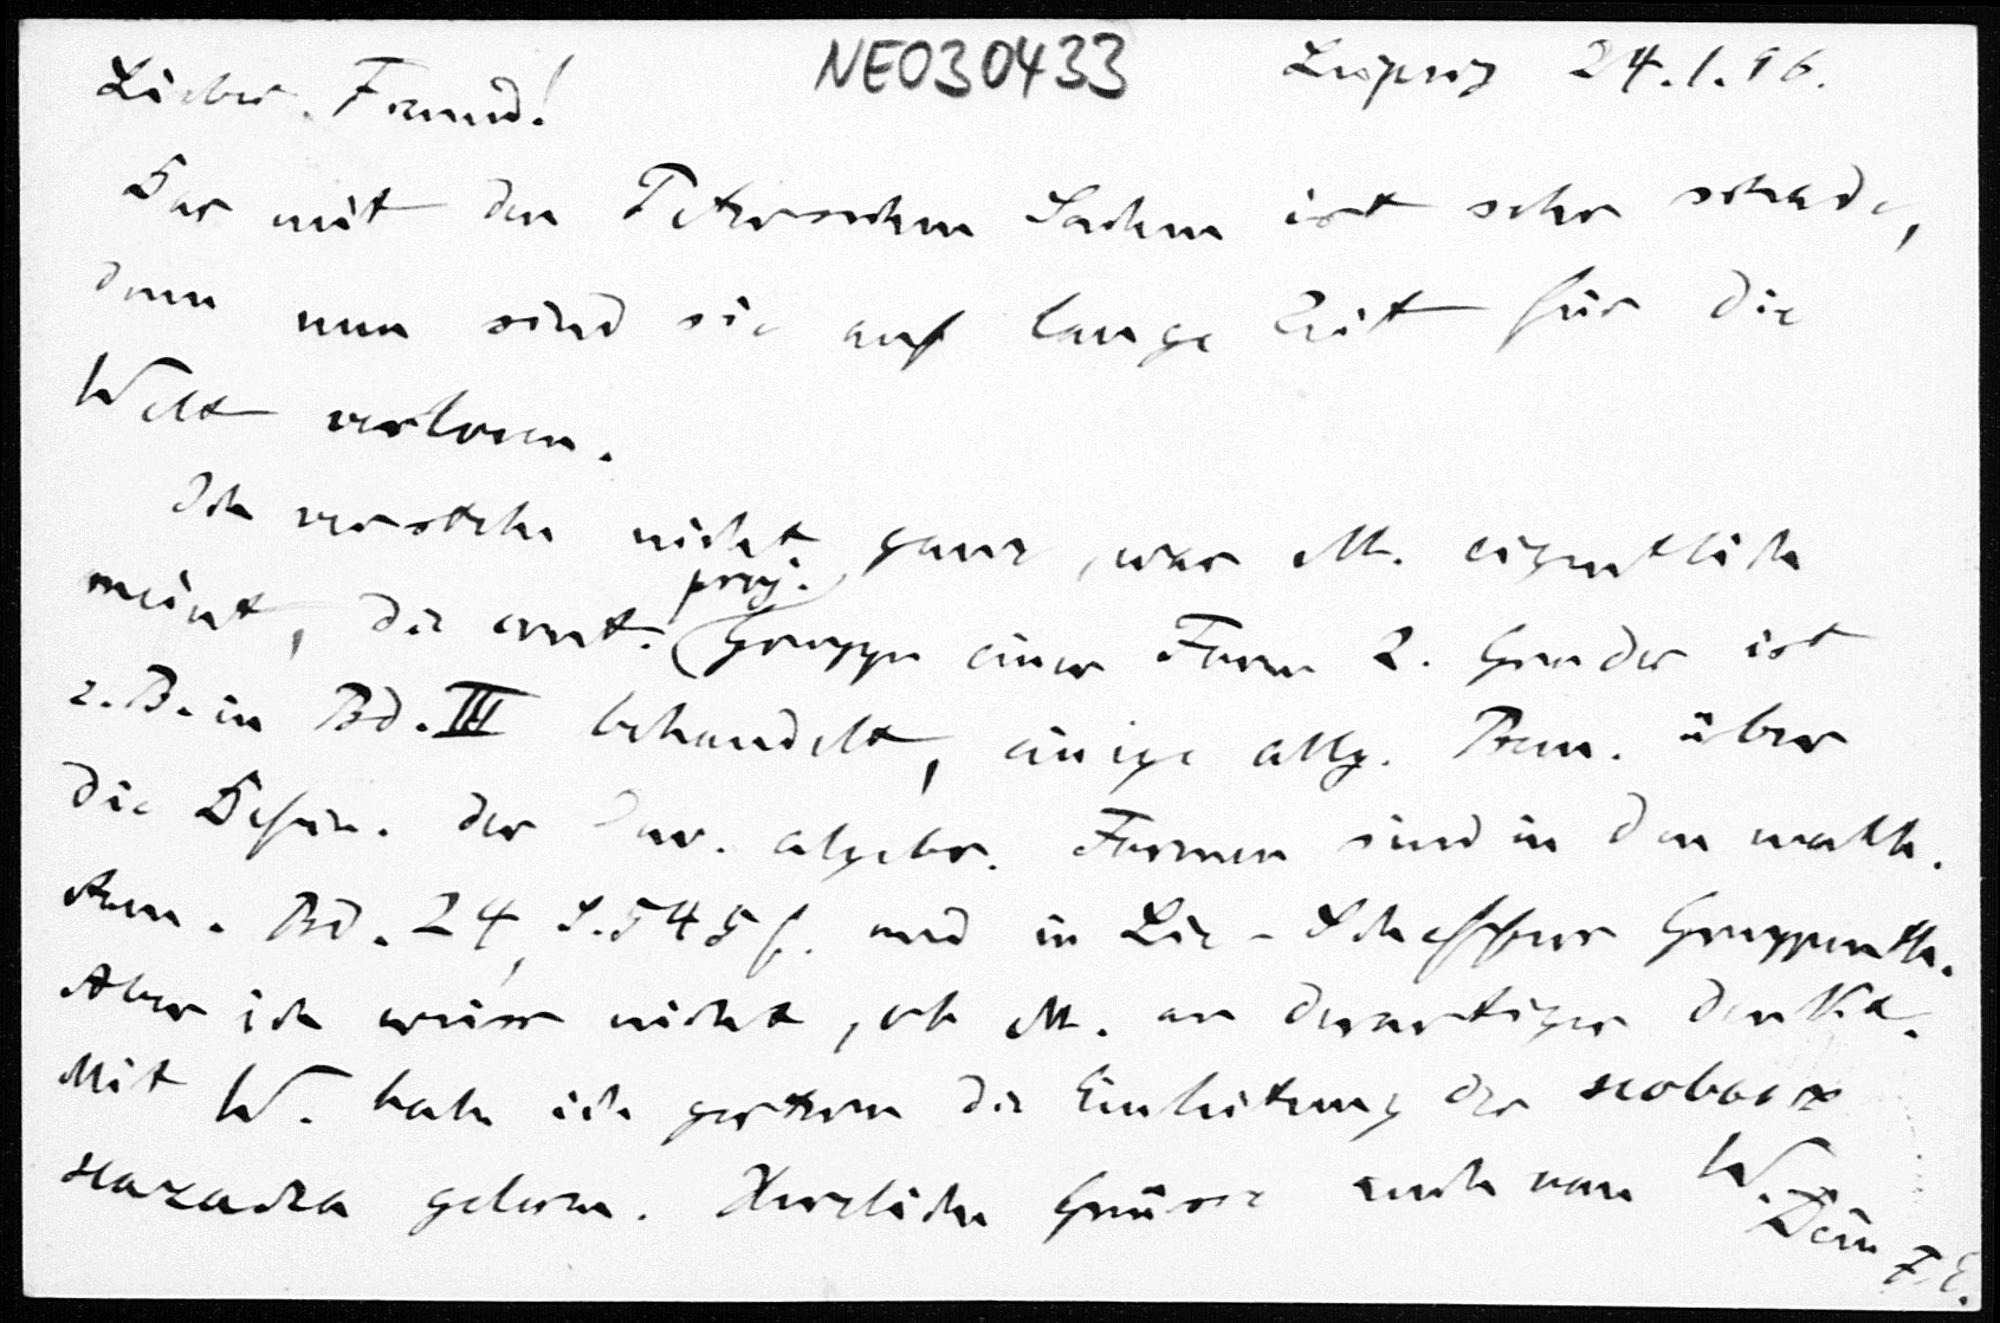 NE030433
Leipzig 24.1.96.
Lieber Freund!
Das mit den Petersschen Sachen ist sehr schade,
denn nun sind sie auf lange Zeit für die
Welt verloren.
Ich verstehe nicht ganz, was M. eigentlich
meint, die cont. proj. Gruppe einer Form 2. Grades ist
z. B. in Bd. III behandelt, einige allg. Bem. über
die Defin. der Inv. algebr. Formen sind in den math.
Ann. Bd. 24, S. 545 f. und in Lie-Scheffers Gruppenth.
Aber ich weiss nicht, ob M. an derartiges denkt.
Mit W. habe ich gestern die Einleitung der
gelesen. Herzliche Grüsse auch von W.
Dein F. E.